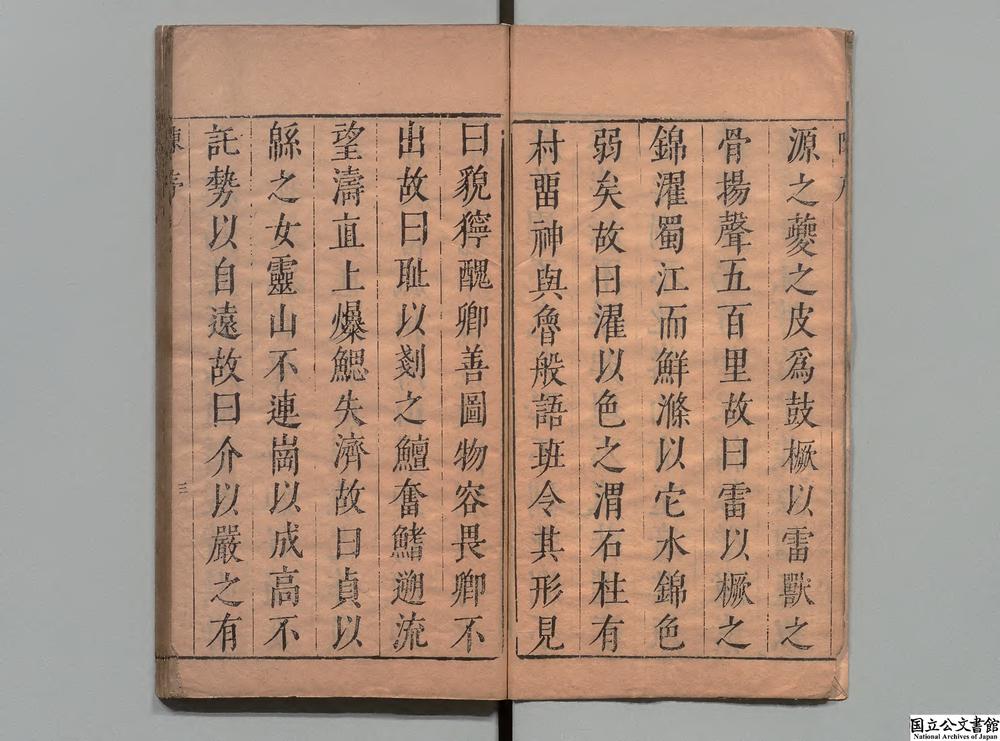 源之夔之皮爲鼓橛以雷獸之
骨揚聲五百里故曰雷以橛之
錦濯蜀江而鮮滌以它水錦色
弱矣故曰濯以色之渭石柱有
村畱神與魯般語班令其形見
曰貌獰醜卿善圖物容畏卿不
出故曰耻以剗之鱣奮鰭遡流
望濤直上爆鰓失濟故曰貞以
繇之女靈山不連崗以成高不
託勢以自遠故曰介以嚴之有
三
国立公文書館
National Archives of Japan